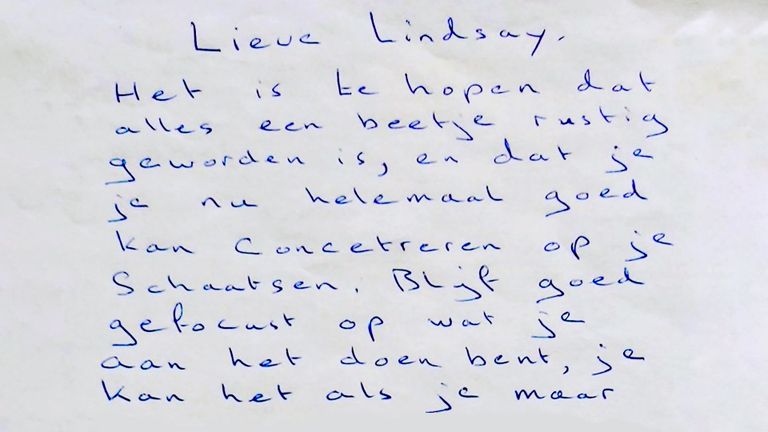 Lieve Lindsay.
Het is te hopen dat
alles een beetje rustig
geworden is, en dat je
je nu helemaal goed
kan Concetreren op je
Schaatsen. Blijf goed
gefocust op wat je
aan het doen bent, je
kan het als je maar